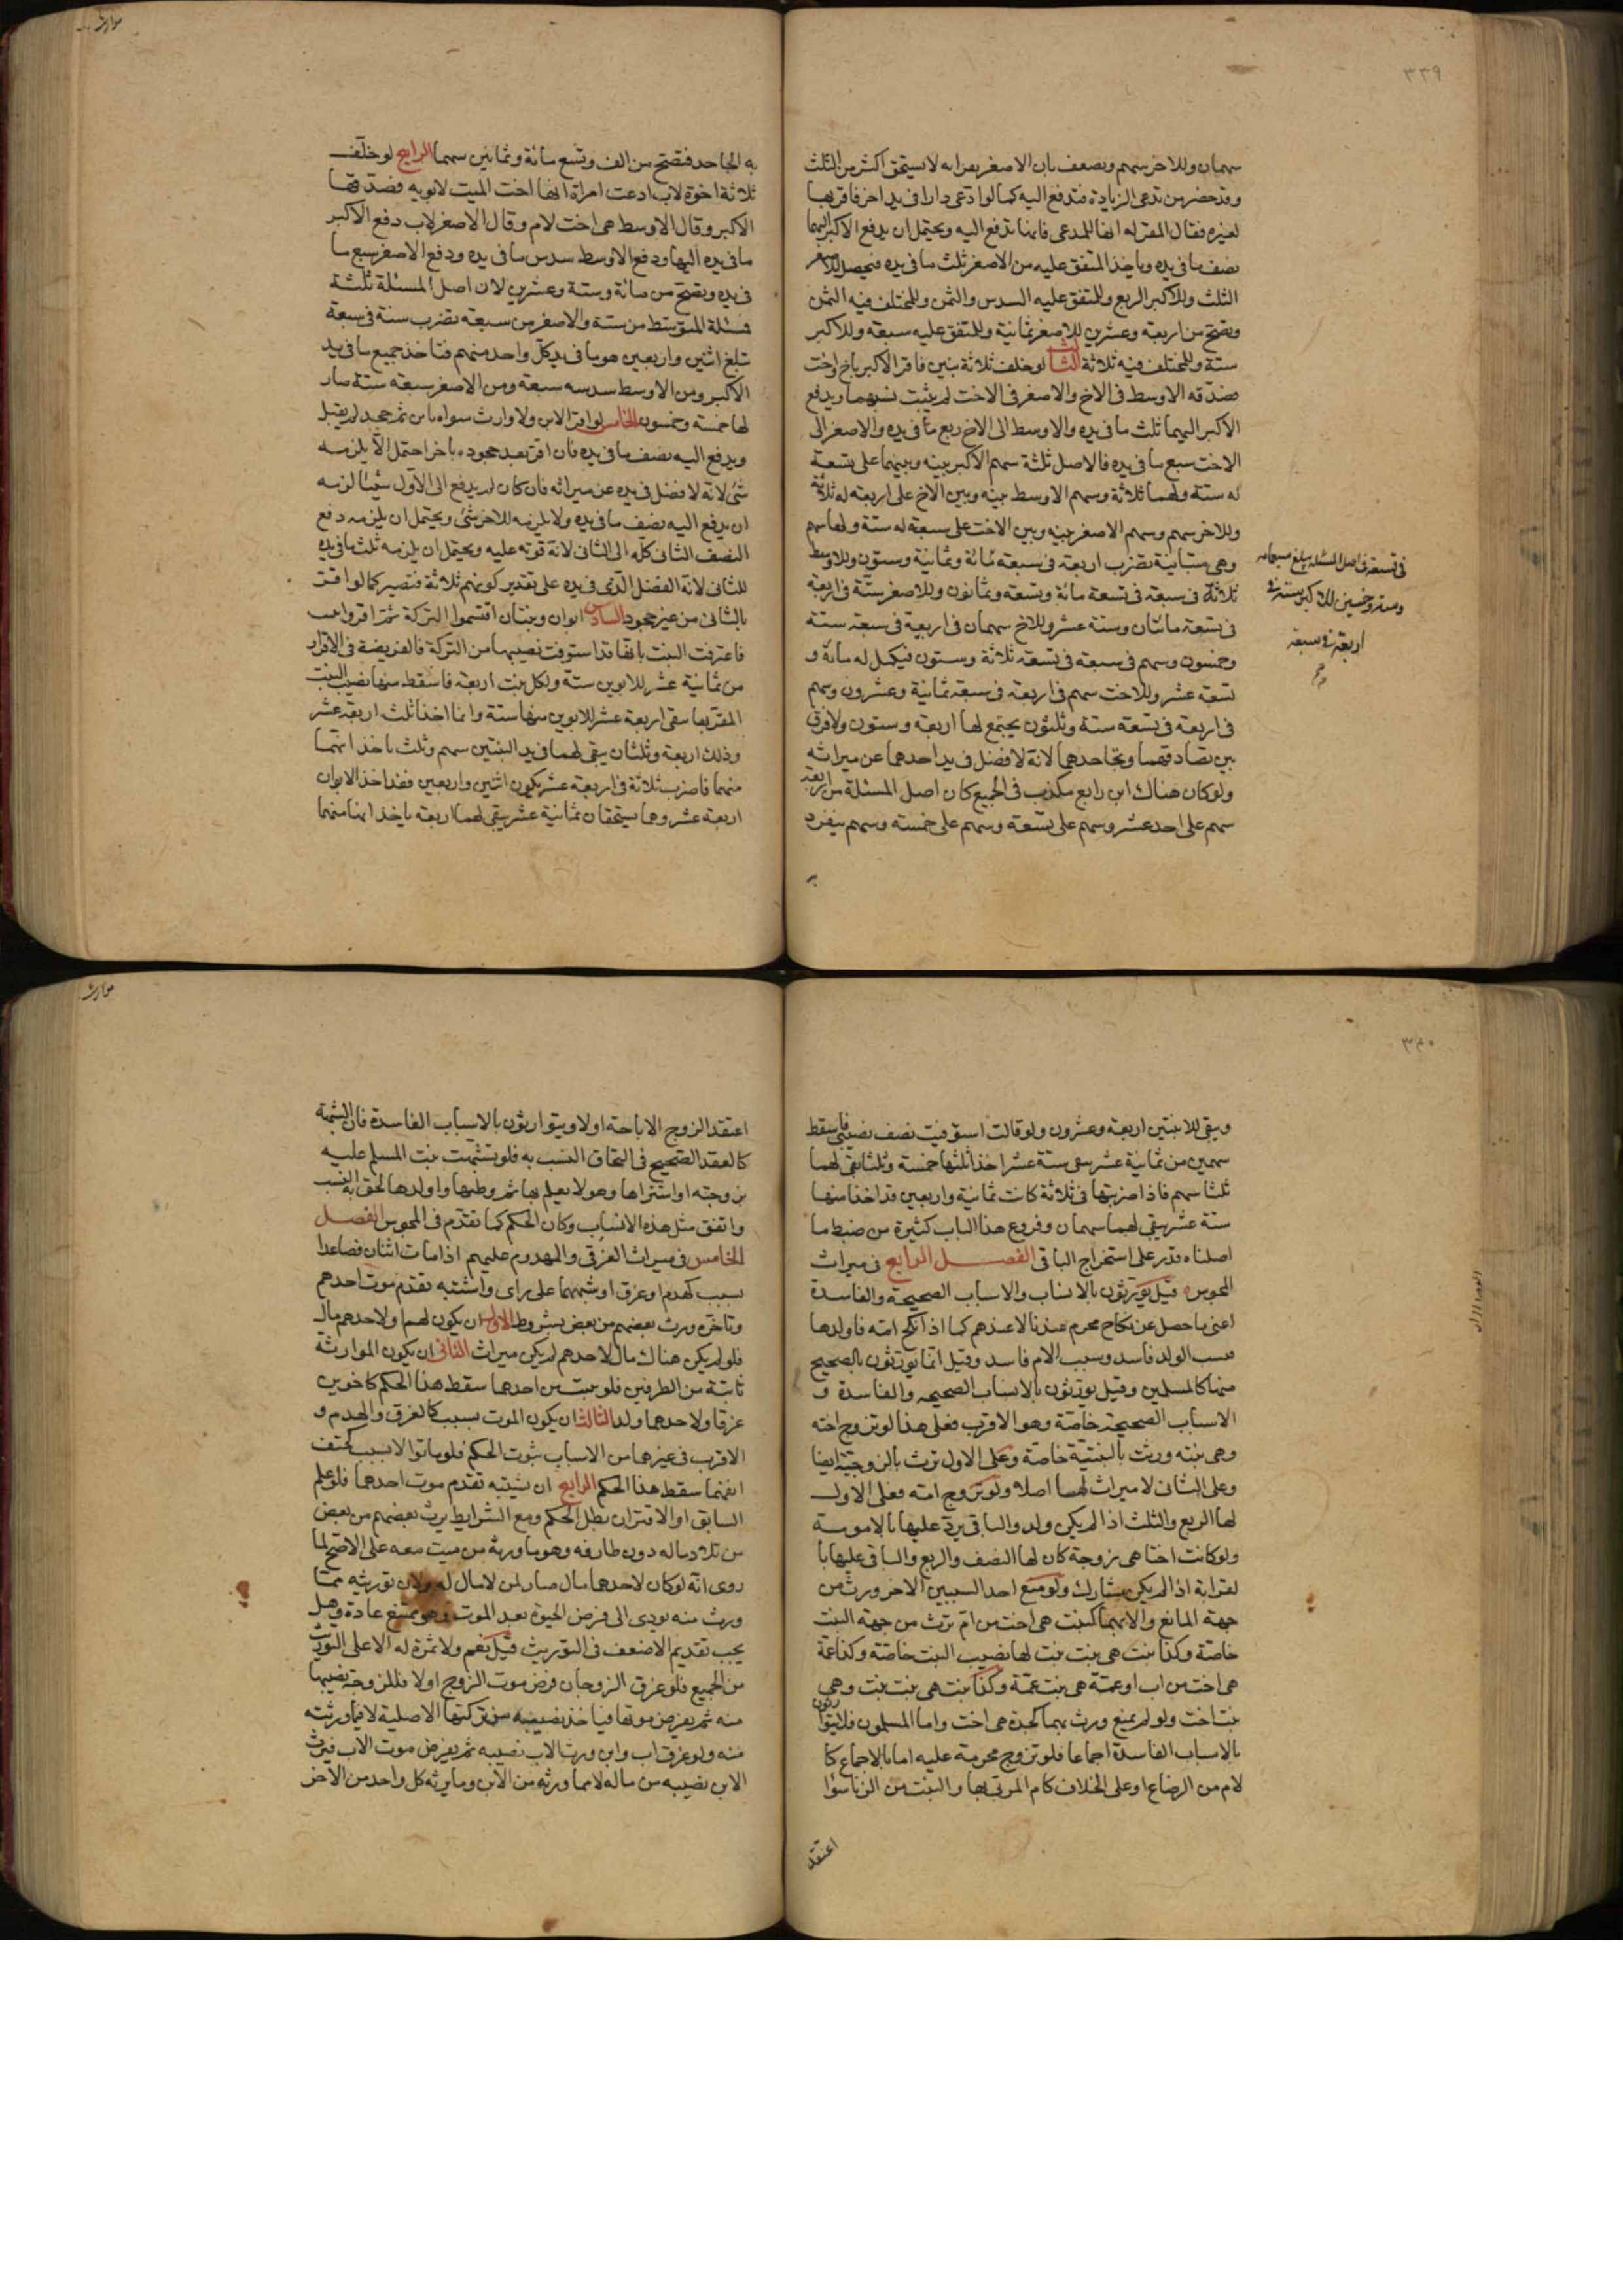 ٣٣٩
سهمان وللاخر سهم ويضعف بان الاصغر يقر انه لا يستحق اكثر من الثلث
وقد حضر من تدعى الزيادة فتدفع اليه كما لو ادعى دارا فى يد اخر فاقر بها
لغيره فقال المقر له انها للمدعى فانها تدفع اليه ويحتمل ان يدفع الاكبر اليهما
نصف ما فى يده وياخذ المتفق عليه من الاصغر ثلث ما فى يده فيحصل للاصغر
الثلث وللاكبر الربع وللمتفق عليه السدس والثمن وللمختلف فيه الثمن
وتصح من اربعة وعشرين للاصغر ثمانية وللمتفق عليه سبعة وللاكبر
ستة وللمختلف فيه ثلاثة الثالث لو خلف ثلاثة بنين فاقر الاكبر باخ واخت
فصدقه الاوسط فى الاخ والاصغر فى الاخت لم يثبت نسبهما ويدفع
الاكبر اليهما ثلث ما فى يده والاوسط الى الاخ ربع ما فى يده والاصغر الى
الاخت سبع ما فى يده فالاصل ثلثة سهم الاكبر بينه وبينهما على تسعة
له ستة ولهما ثلاثة وسهم الاوسط بينه وبين الاخ على اربعة له ثلاثة
وللاخر سهم وسهم الاصغر بينه وبين الاخت على سبعة له ستة ولها سهم
وهى متباينة تضرب اربعة فى سبعة مائة وثمانية وستون وللاوسط
ثلاثة فى سبعة فى تسعة مائة وتسعة وثمانون وللاصغر ستة فى اربعة
فى تسعة مائتان وستة عشر وللاخ سهمان فى اربعة فى سبعة ستة
وخمسون وسهم فى سبعة فى تسعة ثلاثة وستون فيكمل له مائة و
تسعة عشر وللاخت سهم فى اربعة فى سبعة ثمانية وعشرون وسهم
فى اربعة فى تسعة ستة وثلثون يجتمع لها اربعة وستون ولا فرق
بين تصادقهما وتجاحدهما لانه لا فضل فى يد احدهما عن ميراثه
ولو كان هناك ابن رابع مكذب فى الجميع كان اصل المسئلة من اربعة
سهم على احد عشر وسهم على تسعة وسهم على خمسة وسهم ينفرد
فى تسعة فى اصل المسئلة يبلغ سبعمائة
وستة وخمسين للاكبر ستة فى
اربعة فى سبعة
به الجاحد فتصح من الف وتسع مائة وثمانين سهما الرابع لو خلف
ثلاثة اخوة لاب ادعت امراة انها اخت الميت لابويه فصدقها
الاكبر وقال الاوسط هى اخت لام وقال الاصغر لاب دفع الاكبر
ما فى يده اليها ودفع الاوسط سدس ما فى يده ودفع الاصغر سبع ما
فى يده وتصح من مائة وستة وعشرين لان اصل المسئلة ثلثة
فمسئلة المتوسط من ستة والاصغر من سبعة تضرب ستة فى سبعة
تبلغ اثنين واربعين هو ما فى يد كل واحد منهم فتاخذ جميع ما فى يد
الاكبر ومن الاوسط سدسه سبعة ومن الاصغر سبعه ستة صار
لها خمسة وخمسون الخامس لو اقر الابن ولا وارث سواه بابن ثم جحد لم يقبل
ويدفع اليه نصف ما فى يده فان اقر بعد جحوده باخر احتمل الا يلزمه
شئ لانه لا فضل فى يده عن ميراثه فان كان لم يدفع الى الاول شيئا لزمه
ان يدفع اليه نصف ما فى يده ولا يلزمه للاخر شئ ويحتمل ان يلزمه دفع
النصف الثانى كله الى الثانى لانه فوته عليه ويحتمل ان يلزمه ثلث ما فى يده
للثانى لانه الفضل الذى فى يده على تقدير كونهم ثلاثة فتصير كما لو اقر
بالثانى من غير جحود السادس ابوان وبنتان اقتسموا التركة ثم اقروا ببنت
فاعترفت البنت بانها قد استوفت نصيبها من التركة فالفريضة فى الاقرار
من ثمانية عشر للابوين ستة ولكل بنت اربعة فاسقط منها نصيب البنت
المقر بها يبقى اربعة عشر للابوين منها ستة وانما اخذا ثلث اربعة عشر
وذلك اربعة وثلثان يبقى لهما فى يد البنتين سهم وثلث ياخذانهما
منهما فاضرب ثلاثة فى اربعة عشر يكون اثنين واربعين فقد اخذ الابوان
اربعة عشر وهما يستحقان ثمانية عشر يبقى لهما اربعة ياخذانها منهما
ويبقى للابنتين اربعة وعشرون ولو قالت استوفيت نصف نصيبى فاسقط
سهمين من ثمانية عشر يبقى ستة عشر اخذا ثلثها خمسة وثلثا يبقى لهما
ثلثا سهم فاذا ضربتها فى ثلاثة كانت ثمانية واربعين قد اخذا منها
ستة عشر يبقى لهما سهمان وفروع هذا الباب كثيرة من ضبط ما
اصلناه قدر على استخراج الباقى الفصل الرابع فى ميراث
المجوس قيل يورثون بالانساب والاسباب الصحيحة والفاسدة
اعنى ما حصل عن نكاح محرم عندنا لا عندهم كما اذا نكح امه فاولدها
فنسب الولد فاسد وسبب الام فاسد وقيل انما يورثون بالصحيح
منهما كالمسلمين وقيل يورثون بالانساب الصحيحة والفاسدة و
الاسباب الصحيحة خاصة وهو الاقرب فعلى هذا لو تزوج اخته
وهى بنته ورثت بالبنتية خاصة وعلى الاول ترث بالزوجية ايضا
وعلى الثانى لا ميراث لهما اصلا ولو تزوج امه فعلى الاول
لها الربع والثلث اذا لم يكن ولد والباقى يرد عليها بالامومة
ولو كانت اختا هى زوجة كان لها النصف والربع والباقى عليها با
لقرابة اذا لم يكن مشارك ولو منع احد السببين الاخر ورث من
جهة المانع والا بهما كبنت هى اخت من ام ترث من جهة البنت
خاصة وكذا بنت هى بنت بنت لها نصيب البنت خاصة وكذا عمة
هى اخت من اب او عمة هى بنت عمة وكذا بنت هى بنت بنت وهى
بنت اخت ولو لم يمنع ورث بهما كجدة هى اخت واما المسلمون فلا يتوارثون
بالاسباب الفاسدة اجماعا فلو تزوج محرمة عليه اما بالاجماع كا
لام من الرضاع او على الخلاف كام المزنى بها والبنت من الزنا سواء
اعتقد
اعتقد الزوج الاباحة اولا ويتوارثون بالاسباب الفاسدة فان الشبهة
كالعقد الصحيح فى التحاق النسب به فلو تشبهت بنت المسلم عليه
بزوجته او اشتراها وهو لا يعلم بها ثم وطئها واولدها لحق به النسب
واتفق مثل هذه الانساب وكان الحكم كما تقدم فى المجوس الفصل
الخامس فى ميراث الغرقى والمهدوم عليهم اذا مات اثنان فصاعدا
بسبب كهدم او غرق او شبههما على راى واشتبه تقدم موت احدهم
وتاخره ورث بعضهم من بعض بشروط الاول ان يكون لهم او لاحدهم مال
فلو لم يكن هناك مال لاحدهم لم يكن ميراث الثانى ان يكون الموارثة
ثابتة من الطرفين فلو ثبت من احدهما سقط هذا الحكم كاخوين
غرقا ولاحدهما ولد الثالث ان يكون الموت بسبب كالغرق والهدم و
الاقرب فى غيرهما من الاسباب ثبوت الحكم فلو ماتوا لا بسبب كحتف
انفهما سقط هذا الحكم الرابع ان يشتبه تقدم موت احدهما فلو علم
السابق او الاقتران بطل الحكم ومع الشرايط يرث بعضهم من بعض
من تلاد ماله دون طارفه وهو ما ورثه من ميت معه على الاصح لما
روى انه لو كان لاحدهما مال صار لمن لا مال له ولان توريثه مما
ورث منه يؤدى الى فرض الحيوة بعد الموت وهو ممتنع عادة وهل
يجب تقديم الاضعف فى التوريث قيل نعم ولا ثمرة له الا على التوريث
من الجميع فلو غرق الزوجان فرض موت الزوج اولا فللزوجة نصيبها
منه ثم يفرض موتها فياخذ نصيبه من تركتها الاصلية لا فيما ورثته
منه ولو غرق اب وابن ورث الاب نصيبه ثم يفرض موت الاب فيرث
الابن نصيبه من ماله لا مما ورثه من الابن وما يرثه كل واحد من الاخر